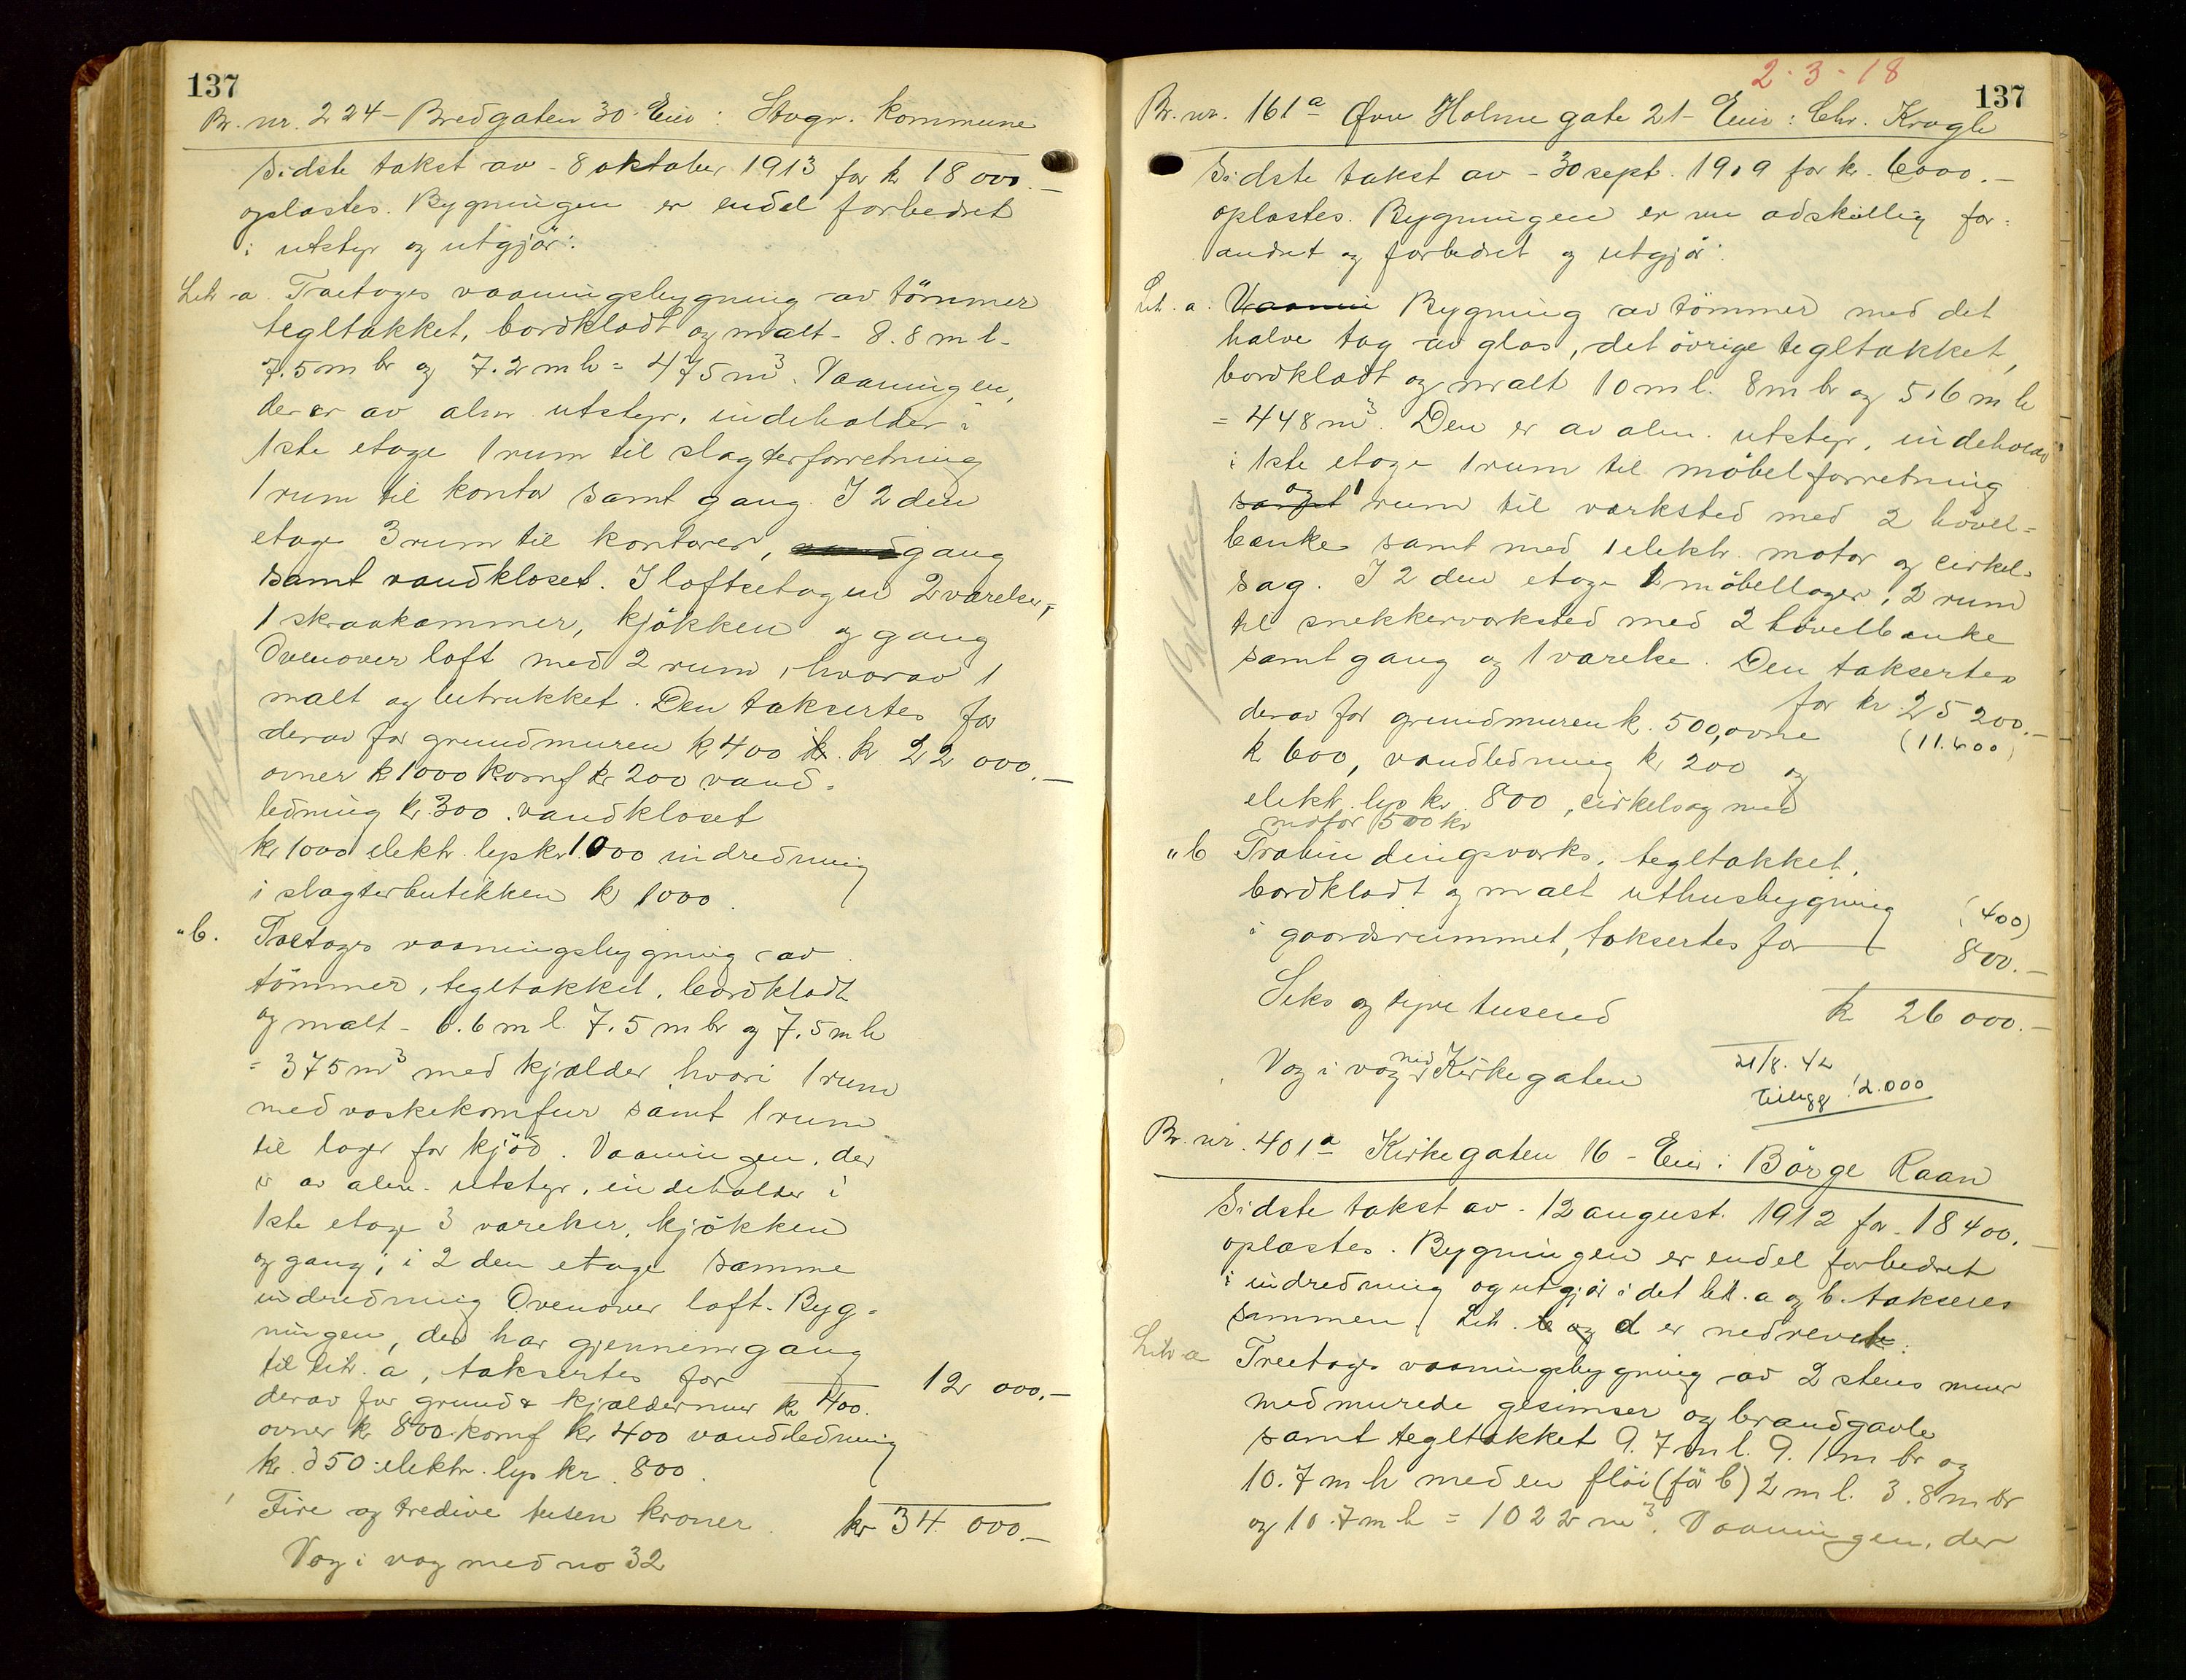 137
Br. nr. 224 - Bredgaten 30. Eier: Stvgr. kommune
Sidste takst av - 8 oktober 1913 for kr 18 000.-
oplæstes. Bygningen er endel forbedret
i utstyr og utgjør:
Litr a. Toetages vaaningsbygning av tömmer
tegltækket, bordklædt og malt - 8.8 m l -
7.5 m br og 7.2 m h = 475 m³. Vaaningen,
der er av alm utstyr, indeholder i
1ste etage 1 rum til slagterforretning
1 rum til kontor samt gang. I 2den
etage 3 rum til kontorer, gang
samt vandkloset. I loftsetagen 2 værelser,
1 skraakammer, kjökken og gang
Ovenover loft med 2 rum, hvorav 1
malt og betrukket. Den taksertes for
derav for grundmuren kr 400 kr. kr 22 000.-
ovner kr 1000 komf kr 200 vand-
ledning kr 300. vandkloset
kr 1000 elektr. lys kr 1000 indredning
i slagterbutikken kr 1000.
" b. Toetages vaaningsbygning av
tömmer, tegltækket, bordklædt
og malt - 6.6 m l. 7.5 m br og 7.5 m h
= 375 m³ med kjælder hvori 1 rum
med vaskekomfur samt 1 rum
til lager for kjöd. Vaaningen, der
er av alm. utstyr, indeholder i
1ste etage 3 værelser, kjökken
og gang; i 2den etage samme
indredning Ovenover loft. Byg-
ningen, der har gjennemgang
til litr. a, taksertes for 12 000.-
derav for grund & kjældermur kr 400.
ovner kr 800 komf kr 400 vandledning
kr. 350 elektr. lys kr. 800.
Fire og tredive tusen kroner. kr 34 000.-
Væg i væg med no 32
2-3-18
137
Br. nr. 161 a Övre Holmegate 21 - Eier: Chr. Kragle
Sidste takst av - 30 sept. 1909 for kr. 6000.-
oplæstes. Bygningen er nu adskillig for-
andret og forbedret og utgjør:
Lit. a. Vaanin Bygning av tömmer med det
halve tag av glas, det övrige tegltækket,
bordklædt og malt 10 m l. 8 m br og 5.6 m h
= 448 m³. Den er av alm. utstyr, indeholder
i 1ste etage 1 rum til möbelforretning
og 1 rum til værksted med 2 hövel-
bænke samt med 1 elektr. motor og cirkel-
sag. I 2den etage 1 möbellager, 2 rum
til snekkerværksted med 2 hövelbænke
samt gang og 1 værelse. Den taksertes
for kr 25 200.-
derav for grundmuren kr. 500, ovne (11.600)
kr 600, vandledning kr 200 og
elektr. lys kr. 800, cirkelsag med
motor 500 kr
" b Træbindingsværks, tegltækket,
bordklædt og malt uthusbygning (400)
i gaardsrummet, taksertes for 800.-
Seks og tyve tusend kr 26 000.-
Væg i væg med 7 Kirkegaten
21/8. 42
Tillegg 12.000
Br. nr. 401 a Kirkegaten 16 - Eier: Börge Raan
Sidste takst av - 12 august 1912 for 18 400.-
oplæstes. Bygningen er endel forbedret
i indredning og utgjør i det lit. a og b. takseres
sammen. Litr. c og d er nedrevet.
Litr a Treetages vaaningsbygning av 2 stens mur
med murede gesimser og brandgavle
samt tegltækket 9.7 m l. 9.1 m br og
10.7 m h med en flöi (för b) 2 m l. 3.8 m br
og 10.7 m h = 1022 m³. Vaaningen, der